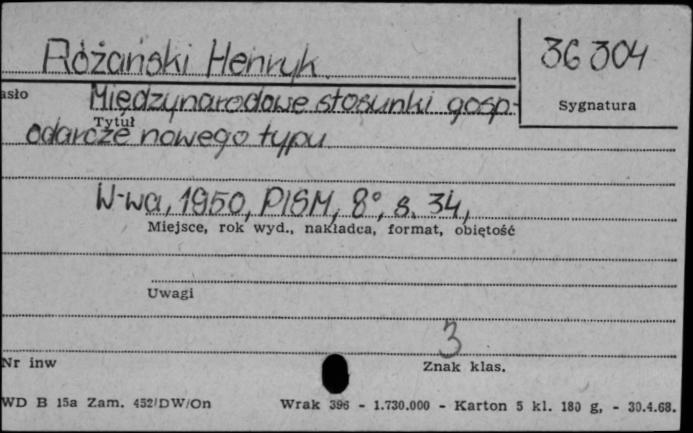 Różański Henryk
36 304
asło
Sygnatura
Międzynarodowe stosunki gosp-
Tytuł
odarcze nowego typu
W-wa, 1950, PISM, 8°, s. 34,
Miejsce, rok wyd., nakładca, format, obiętość
Uwagi
3
Nr inw
Znak klas.
WD B 15a Zam. 452/DW/On
Wrak 396 - 1.730.000 - Karton 5 kl. 180 g, - 30.4.68.